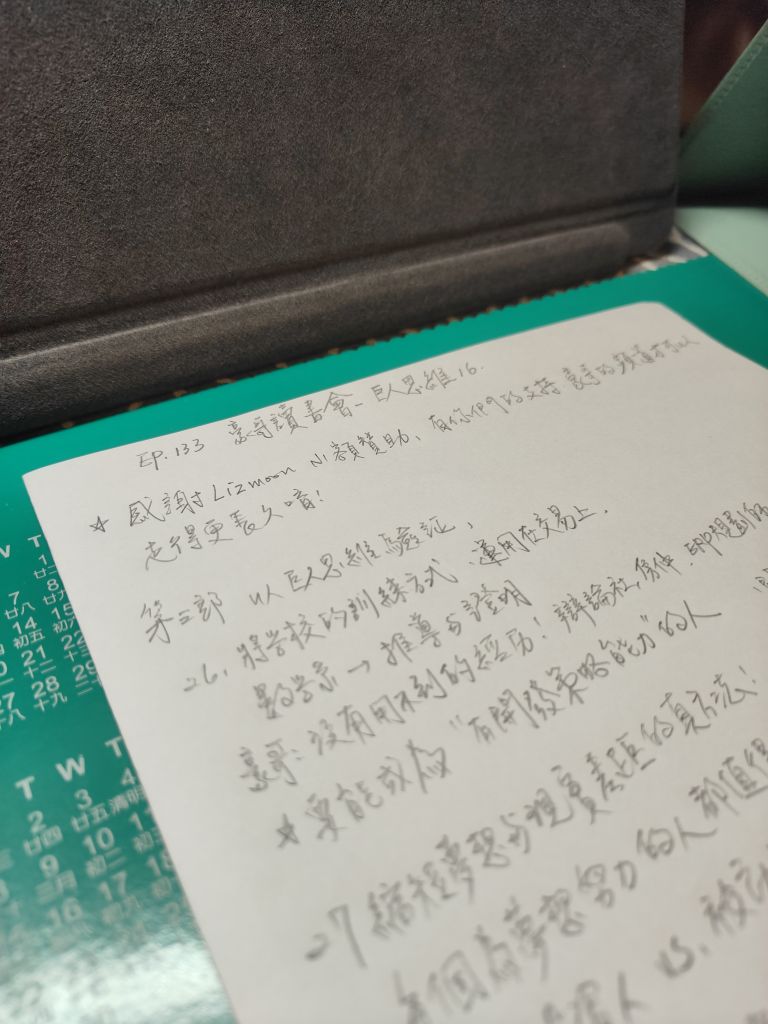 EP.133 豪哥讀書會-巨人思維16.
* 感謝 Lizmoon Ni 額贊助, 有你們的支持 豪哥的頻道可以
走得更長久唷!
第三部 以巨人思維驗証,
26, 將学校的訓練方式、運用在交易上.
數学系→推導与證明
豪哥: 沒有用不到的經历! 辯論社, 係伸, ERP規劃師
* 要能成為 "有開發策略能力" 的人
27 縮短夢想与現實差距的真方法!
每個為夢想努力的人都值得
人 vs. 被
W T
7
廿八
8
廿九
14
初五
15
初六
21
十二
22
28
十九
29
T W T
2
廿四
3
廿五
4
清明
9
三月
10
初二
11
初三
16
17
18
23
24